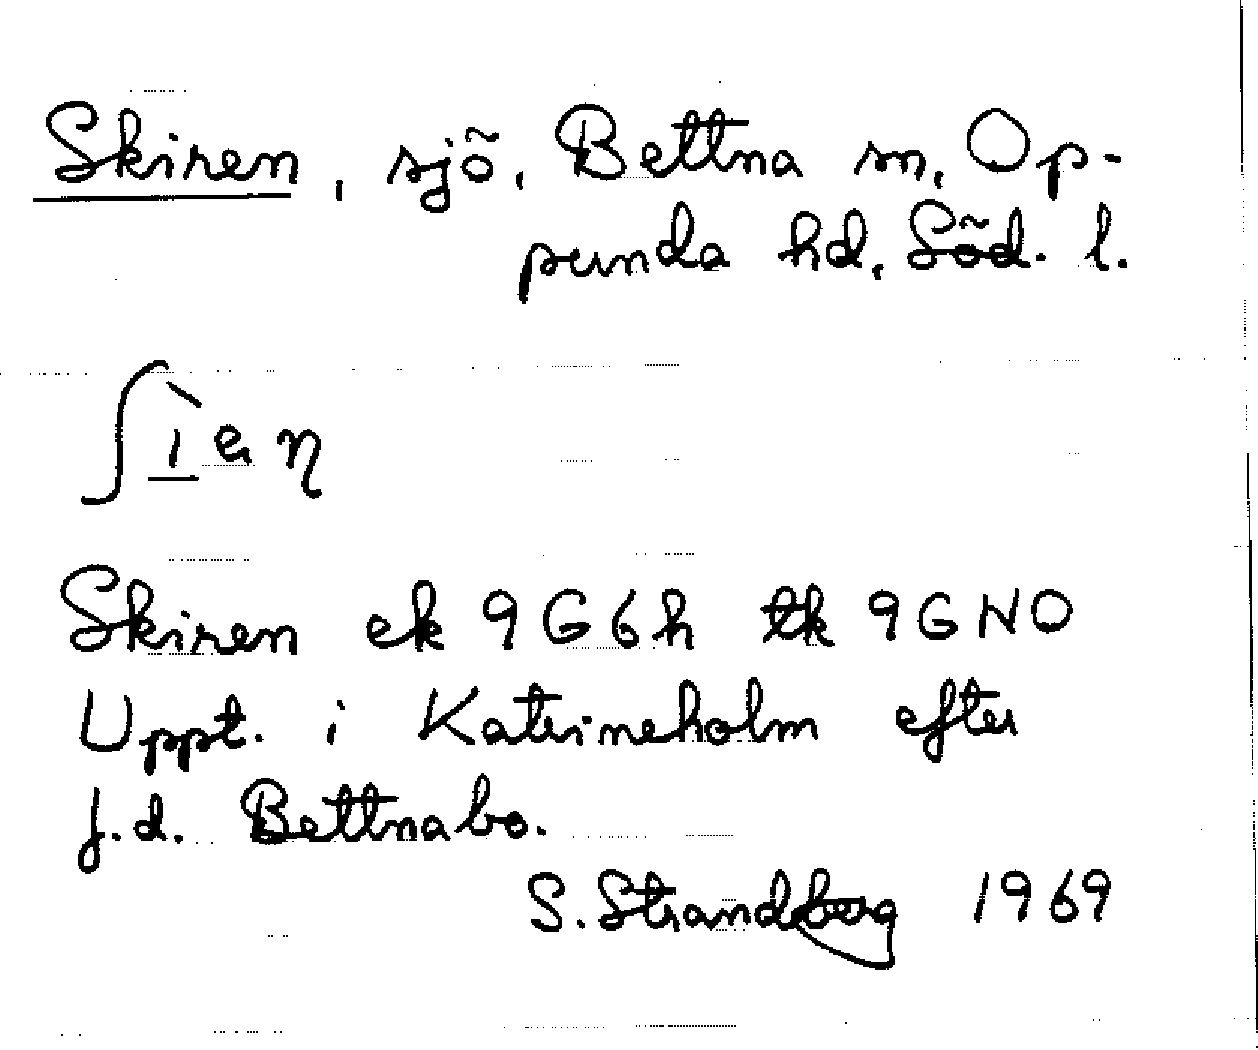 Skiren, sjö, Bettna sn, Op-
punda hd, Söd. l.
Skiren ek 9G6h tk 9GNO
Uppt. i Katrineholm efter
f.d. Bettnabo.
S. Strandberg 1969